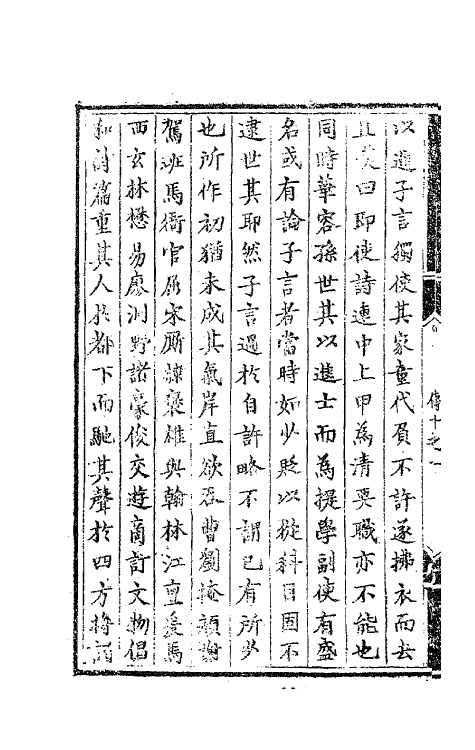 以進子言獨使其家童代頁不許遂拂衣而去
且㸑曰即使詩連中上甲為清要職亦不能也
同時華容孫世其以進士而為提學副使有盛
名或有論子言者當時如少貶以從科目固不
逮世其耶然子言過於自許略不謂已有所少
也所作初猶未成其氣岸直欲吞曹劉掩顏謝
駕班馬衙官屈宋厮隸褒雄與翰林江亶爰馬
西玄林懋易廖洞野諸豪俊交遊商訂文物倡
和詩篇重其人於都下而馳其聲於四方搢紳
傳十之一